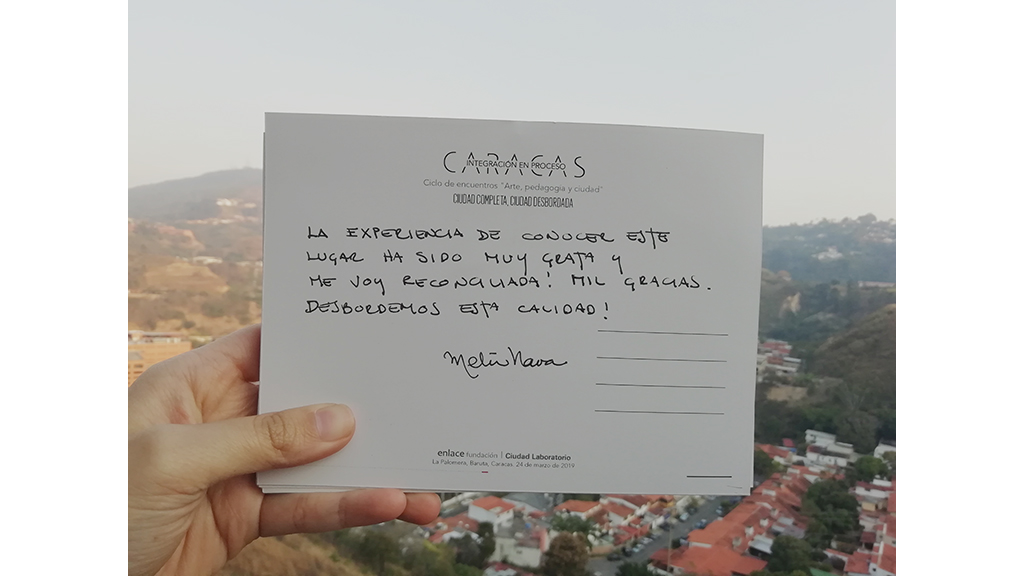 CARACAS
INTEGRACIÓN EN PROCESO
Ciclo de encuentros "Arte, pedagogía y ciudad"
CIUDAD COMPLETA, CIUDAD DESBORDADA
LA EXPERIENCIA DE CONOCER ESTE
LUGAR HA SIDO MUY GRATA Y
ME VOY RECONCILIADA! MIL GRACIAS.
DESBORDEMOS ESTA CALIDAD!
Nava
enlace fundación | Ciudad Laboratorio
La Palomera, Baruta, Caracas. 24 de marzo de 2019